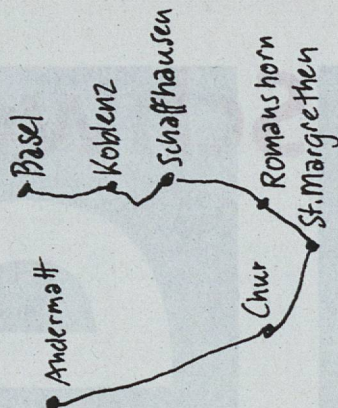 Basel
Koblenz
Schaffhausen
Romanshorn
St. Margrethen
Chur
Andermatt